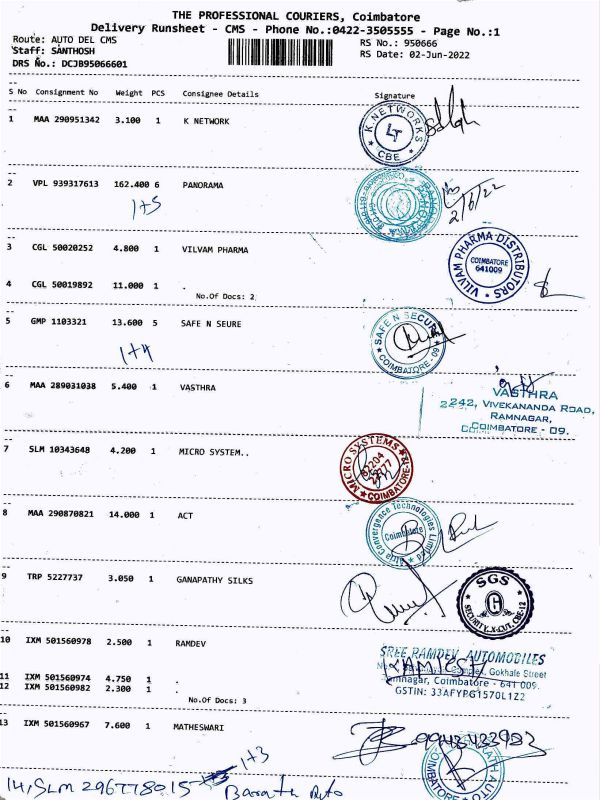 THE PROFESSIONAL COURIERS, Coimbatore
Delivery Runsheet - CMS - Phone No.:0422-3505555 - Page No.:1
Route: AUTO DEL CMS
RS No.: 950666
Staff: SANTHOSH
RS Date: 02-Jun-2022
DRS No.: DCJB95066601
S No Consignment No Weight PCS Consignee Details Signature
1 MAA 290951342 3.100 1 K NETWORK
K.NETWORKS
CBE
2 VPL 939317613 162.400 6 PANORAMA
1+5
2/6/22
3 CGL 50020252 4.800 1 VILVAM PHARMA
VILVAM PHARMA DISTRIBUTORS
COIMBATORE
641009
4 CGL 50019892 11.000 1 .
No.Of Docs: 2
5 GMP 1103321 13.600 5 SAFE N SEURE
SAFE N SECURE
COIMBATORE - 09
1+4
6 MAA 289031038 5.400 1 VASTHRA
VASTHRA
242, VIVEKANANDA ROAD,
RAMNAGAR,
COIMBATORE - 09.
7 SLM 10343648 4.200 1 MICRO SYSTEM..
MICRO SYSTEMS
COIMBATORE-12
8 MAA 290870821 14.000 1 ACT
Convergence Technologies
Coimbatore
9 TRP 5227737 3.050 1 GANAPATHY SILKS
SGS
G
SECURITY-X-CUT, CBE-12
10 IXM 501560978 2.500 1 RAMDEV
SREE RAMDEV AUTOMOBILES
Complex, Gokhale Street
Ramnagar, Coimbatore - 641 009.
GSTIN: 33AFYPG1570L1Z2
RAMESH
11 IXM 501560974 4.750 1 .
12 IXM 501560982 2.300 1 .
No.Of Docs: 3
13 IXM 501560967 7.600 1 MATHESWARI
1+3
14, SLM 296778015 Barath Auto
COIMBATORE